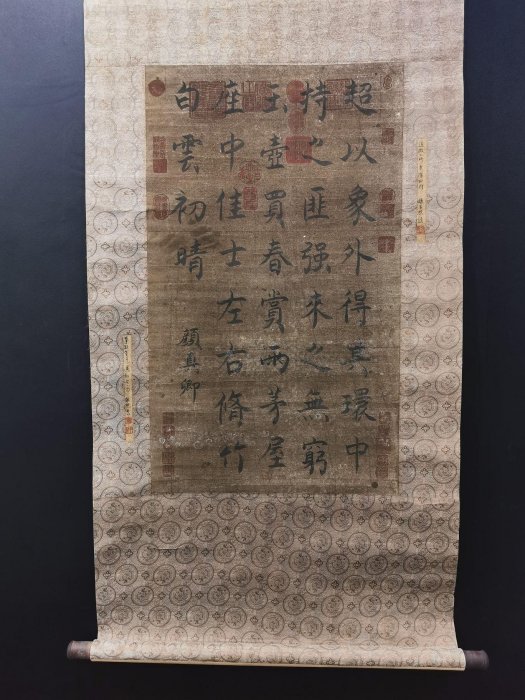 超以象外得其環中
持之匪强来之無窮
玉壺買春賞雨茅屋
座中佳士左右脩竹
白雲初晴
顔真卿